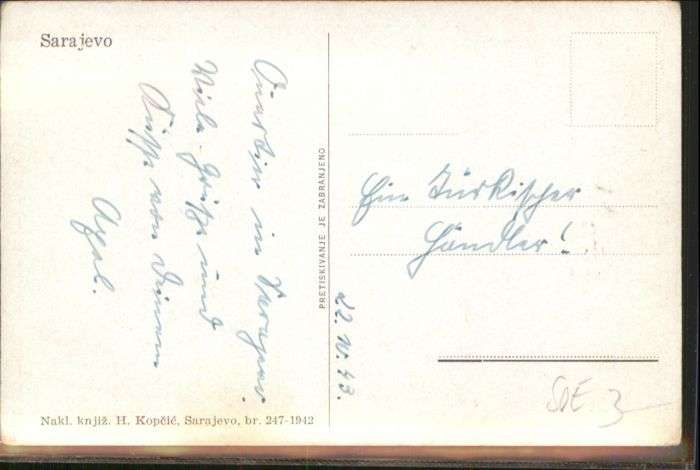 Sarajevo
in Sarajevo.
Viele Grüße und
Küsse von Deinem
PRETISKIVANJE JE ZABRANJENO
Ein Türkischer
Händler!
22. IV. 43.
Nakl. knjiž. H. Kopčić, Sarajevo, br. 247-1942
3